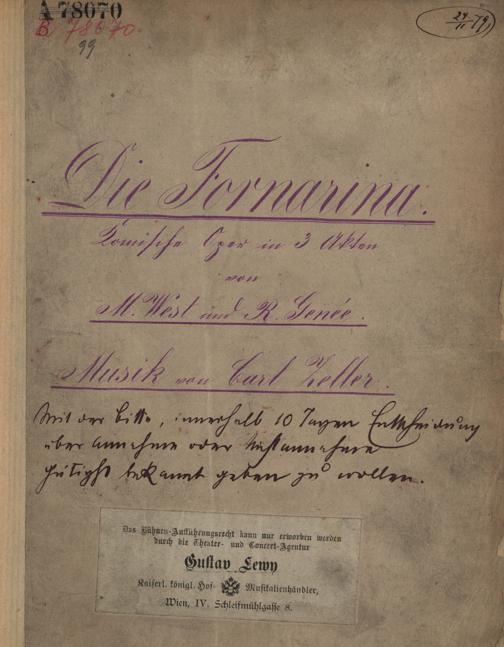 A 78070
B 78670.
99
24/11 79
Die Fornarina.
Komische Oper in 3 Akten
von
M. West und R. Genée.
Musik von Carl Zeller.
Mit der Bitte, innerhalb 10 Tagen Entscheidung
über Annahme oder Nichtannahme
gütigst bekannt geben zu wollen.
Das Bühnen-Aufführungsrecht kann nur erworben werden
durch die Theater- und Concert-Agentur
Gustav Lewy
Kaiserl. königl. Hof- Musikalienhändler,
Wien, IV. Schleifmühlgasse 8.